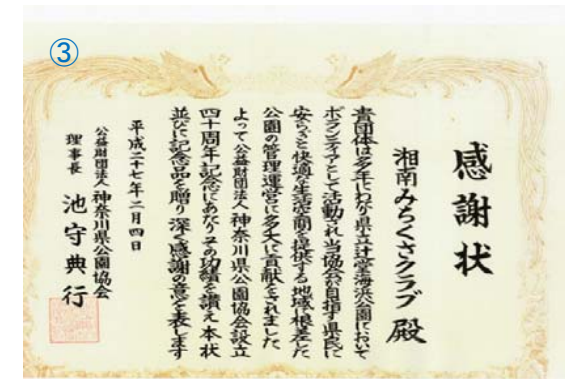 ③
感謝状
湘南みちくさクラブ 殿
貴団体は多年にわたり県立辻堂海浜公園において
ボランティアとして活動され当協会が目指す県民に
安らぎと快適な生活空間を提供する地域に根差した
公園の管理運営に多大に貢献をされました
よって公益財団法人神奈川県公園協会設立
四十周年記念にあたりその功績を讃え本状
並びに記念品を贈り深く感謝の意を表します
平成二十七年二月四日
公益財団法人神奈川県公園協会
理事長 池守典行